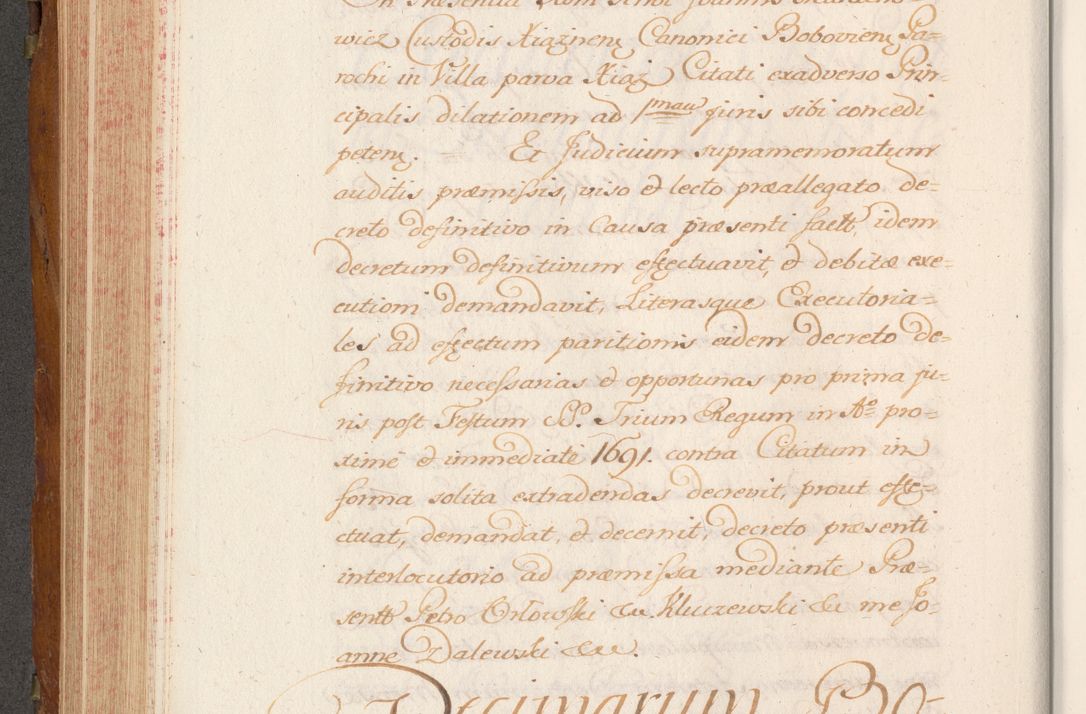 wicz Custodis Xiąznenς Canonici Bobovienς Pa-
rochi in Villa parva Xiąz Citati exadverso Prin-
cipalis dilationem ad 1mam juris sibi concedi
petenς. = Et Judicium supramemoratum
auditis præmissis, viso et lecto præallegato de=
creto definitivo in Causa præsenti facto, idem
decretum definitivum effectuavit, et debitæ exe=
cutioni demandavit, Literasque Executoria=
les ad effectum paritionis eidem decreto de=
finitivo necessarias et opportunas pro prima ju-
ris post Festum SS. Trium Regum in Ao pro-
ximè et immediatè 1691. contra Citatum in
forma solita extradendas decrevit, prout effe=
ctuat, demandat, et decernit, decreto præsenti
interlocutorio ad præmissa mediante Præ=
sentt Petro Orłowski &c. Kluczewski &c me Jo-
anne Dalewski &c.
Decimarum Bo-